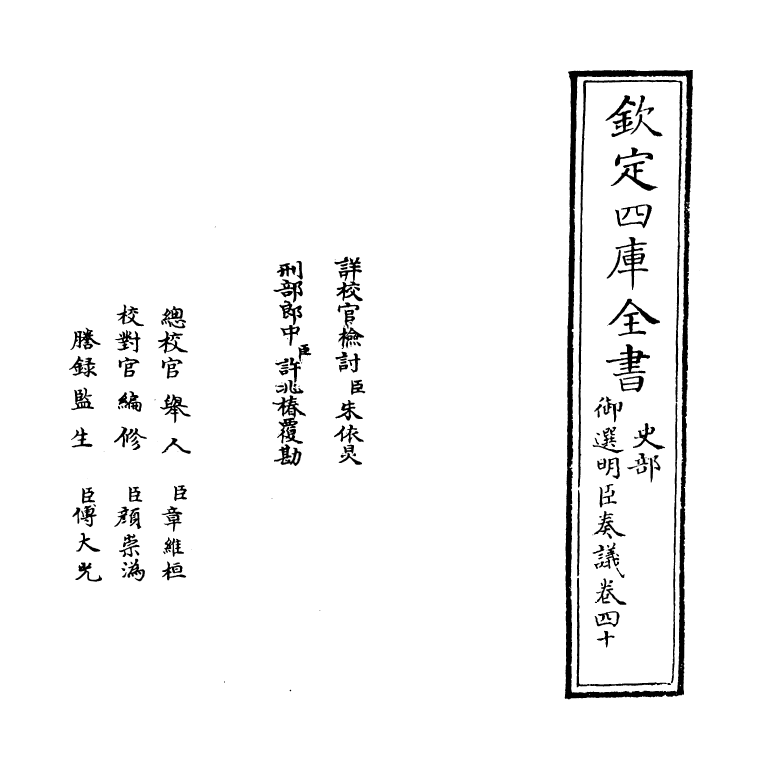 欽定四庫全書
史部
御選明臣奏議卷四十
詳校官檢討臣朱依炅
刑部郎中臣許兆椿覆勘
總校官舉人臣章維桓
校對官編修臣顏崇溈
謄録監生臣傅大光